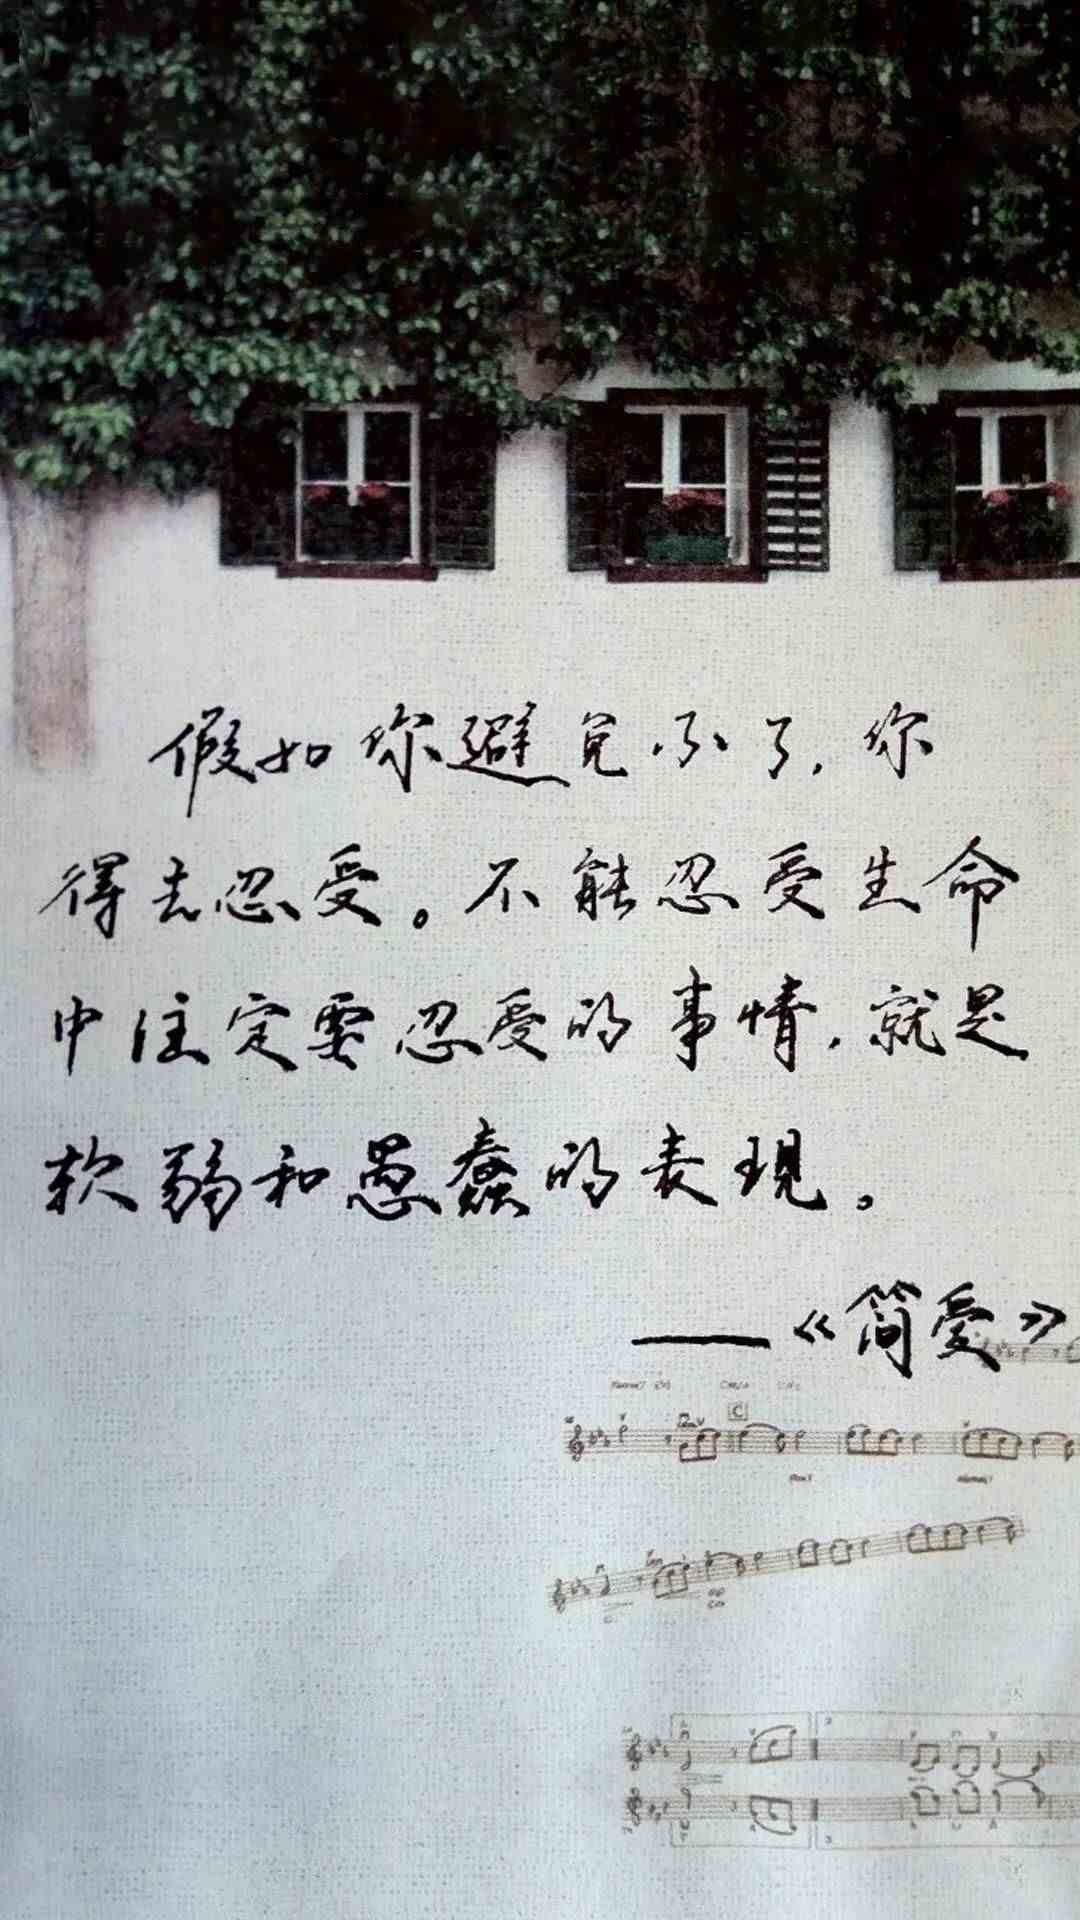 假如你避免不了，你
得去忍受。不能忍受生命
中注定要忍受的事情，就是
软弱和愚蠢的表现。
——《简爱》
C